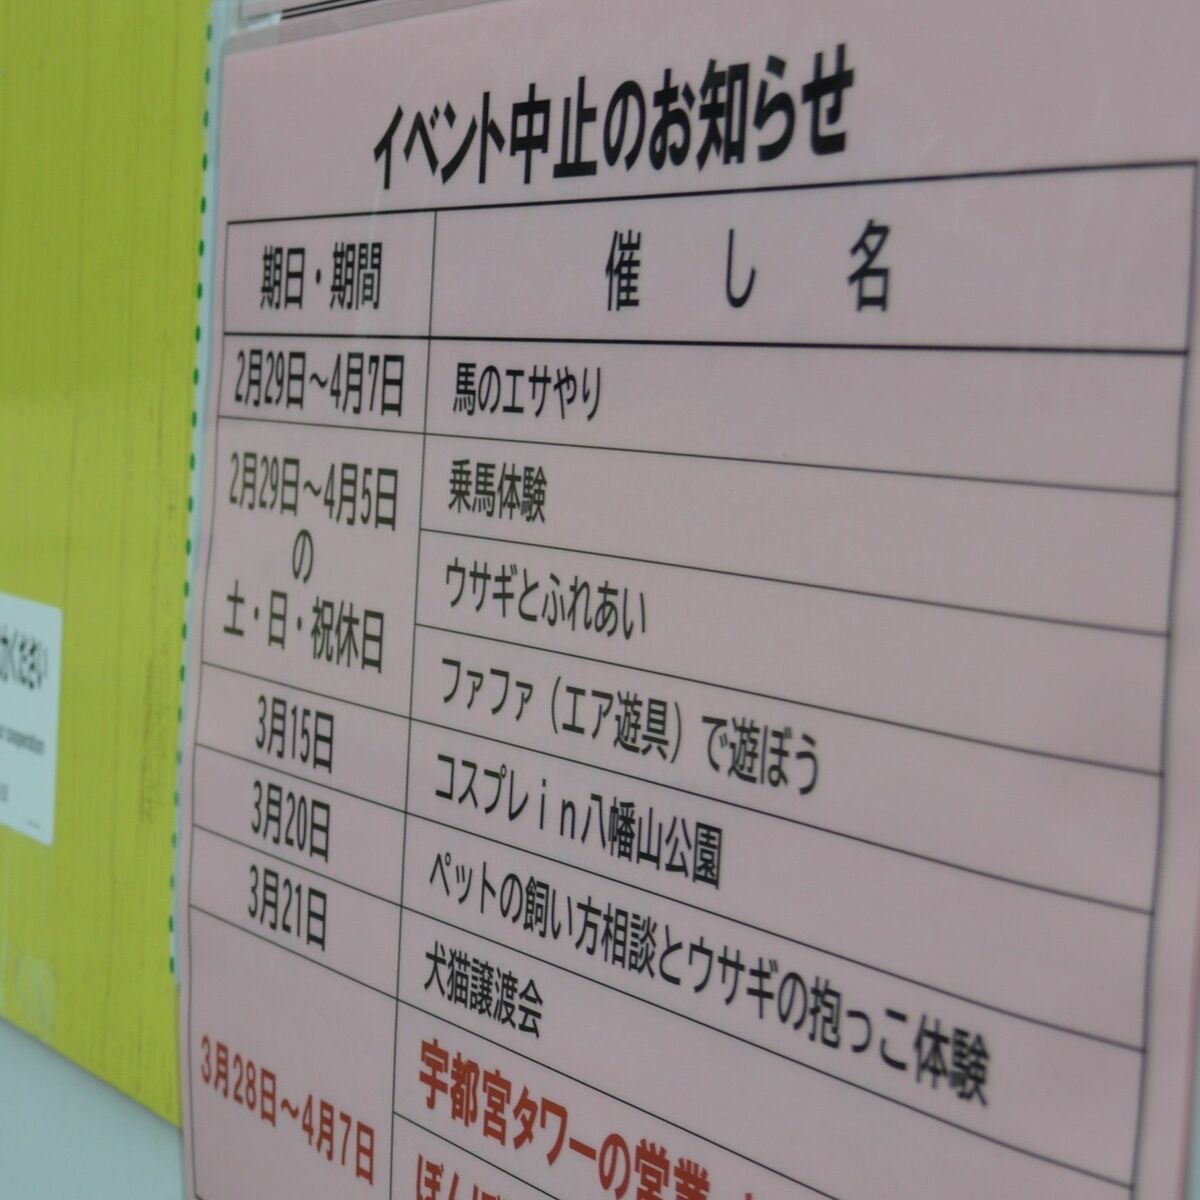 イベント中止のお知らせ
期日・期間
催し名
2月29日～4月7日
馬のエサやり
2月29日～4月5日
の
土・日・祝休日
乗馬体験
ウサギとふれあい
ファファ（エア遊具）で遊ぼう
3月15日
コスプレｉｎ八幡山公園
3月20日
ペットの飼い方相談とウサギの抱っこ体験
3月21日
犬猫譲渡会
3月28日～4月7日
宇都宮タワーの営業
ぼんぼ
ください
cooperation